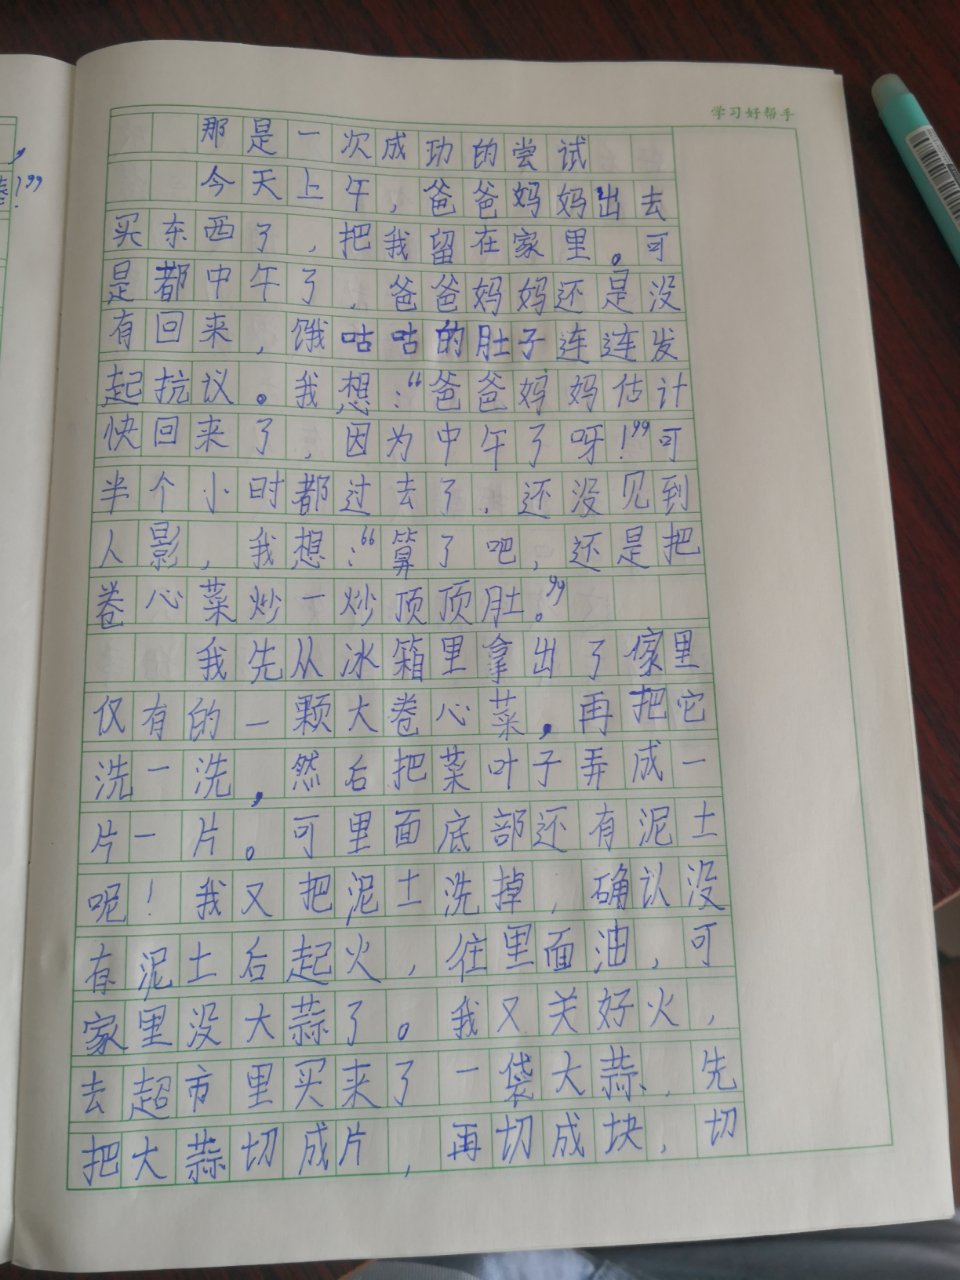 学习好帮手
，
！”
那是一次成功的尝试
今天上午，爸爸妈妈出去
买东西了，把我留在家里。可
是都中午了，爸爸妈妈还是没
有回来，饿咕咕的肚子连连发
起抗议。我想：“爸爸妈妈估计
快回来了，因为中午了呀！”可
半个小时都过去了，还没见到
人影，我想：“算了吧，还是把
卷心菜炒一炒顶顶肚。”
我先从冰箱里拿出了家里
仅有的一颗大卷心菜，再把它
洗一洗，然后把菜叶子弄成一
片一片。可里面底部还有泥土
呢！我又把泥土洗掉，确认没
有泥土后起火，住里面油，可
家里没大蒜了。我又关好火，
去超市里买来了一袋大蒜，先
把大蒜切成片，再切成块，切